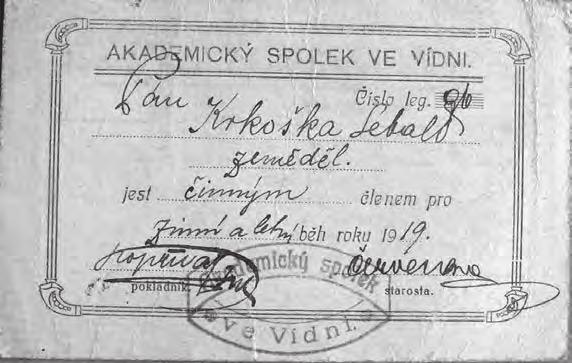 AKADEMICKÝ SPOLEK VE VÍDNI.
Pan Číslo leg. 96
Krkoška Lebald
zeměděl.
jest činným členem pro
zimní a letní běh roku 1919.
Červenka
pokladník. starosta.
Akademický spolek
ve Vídni.